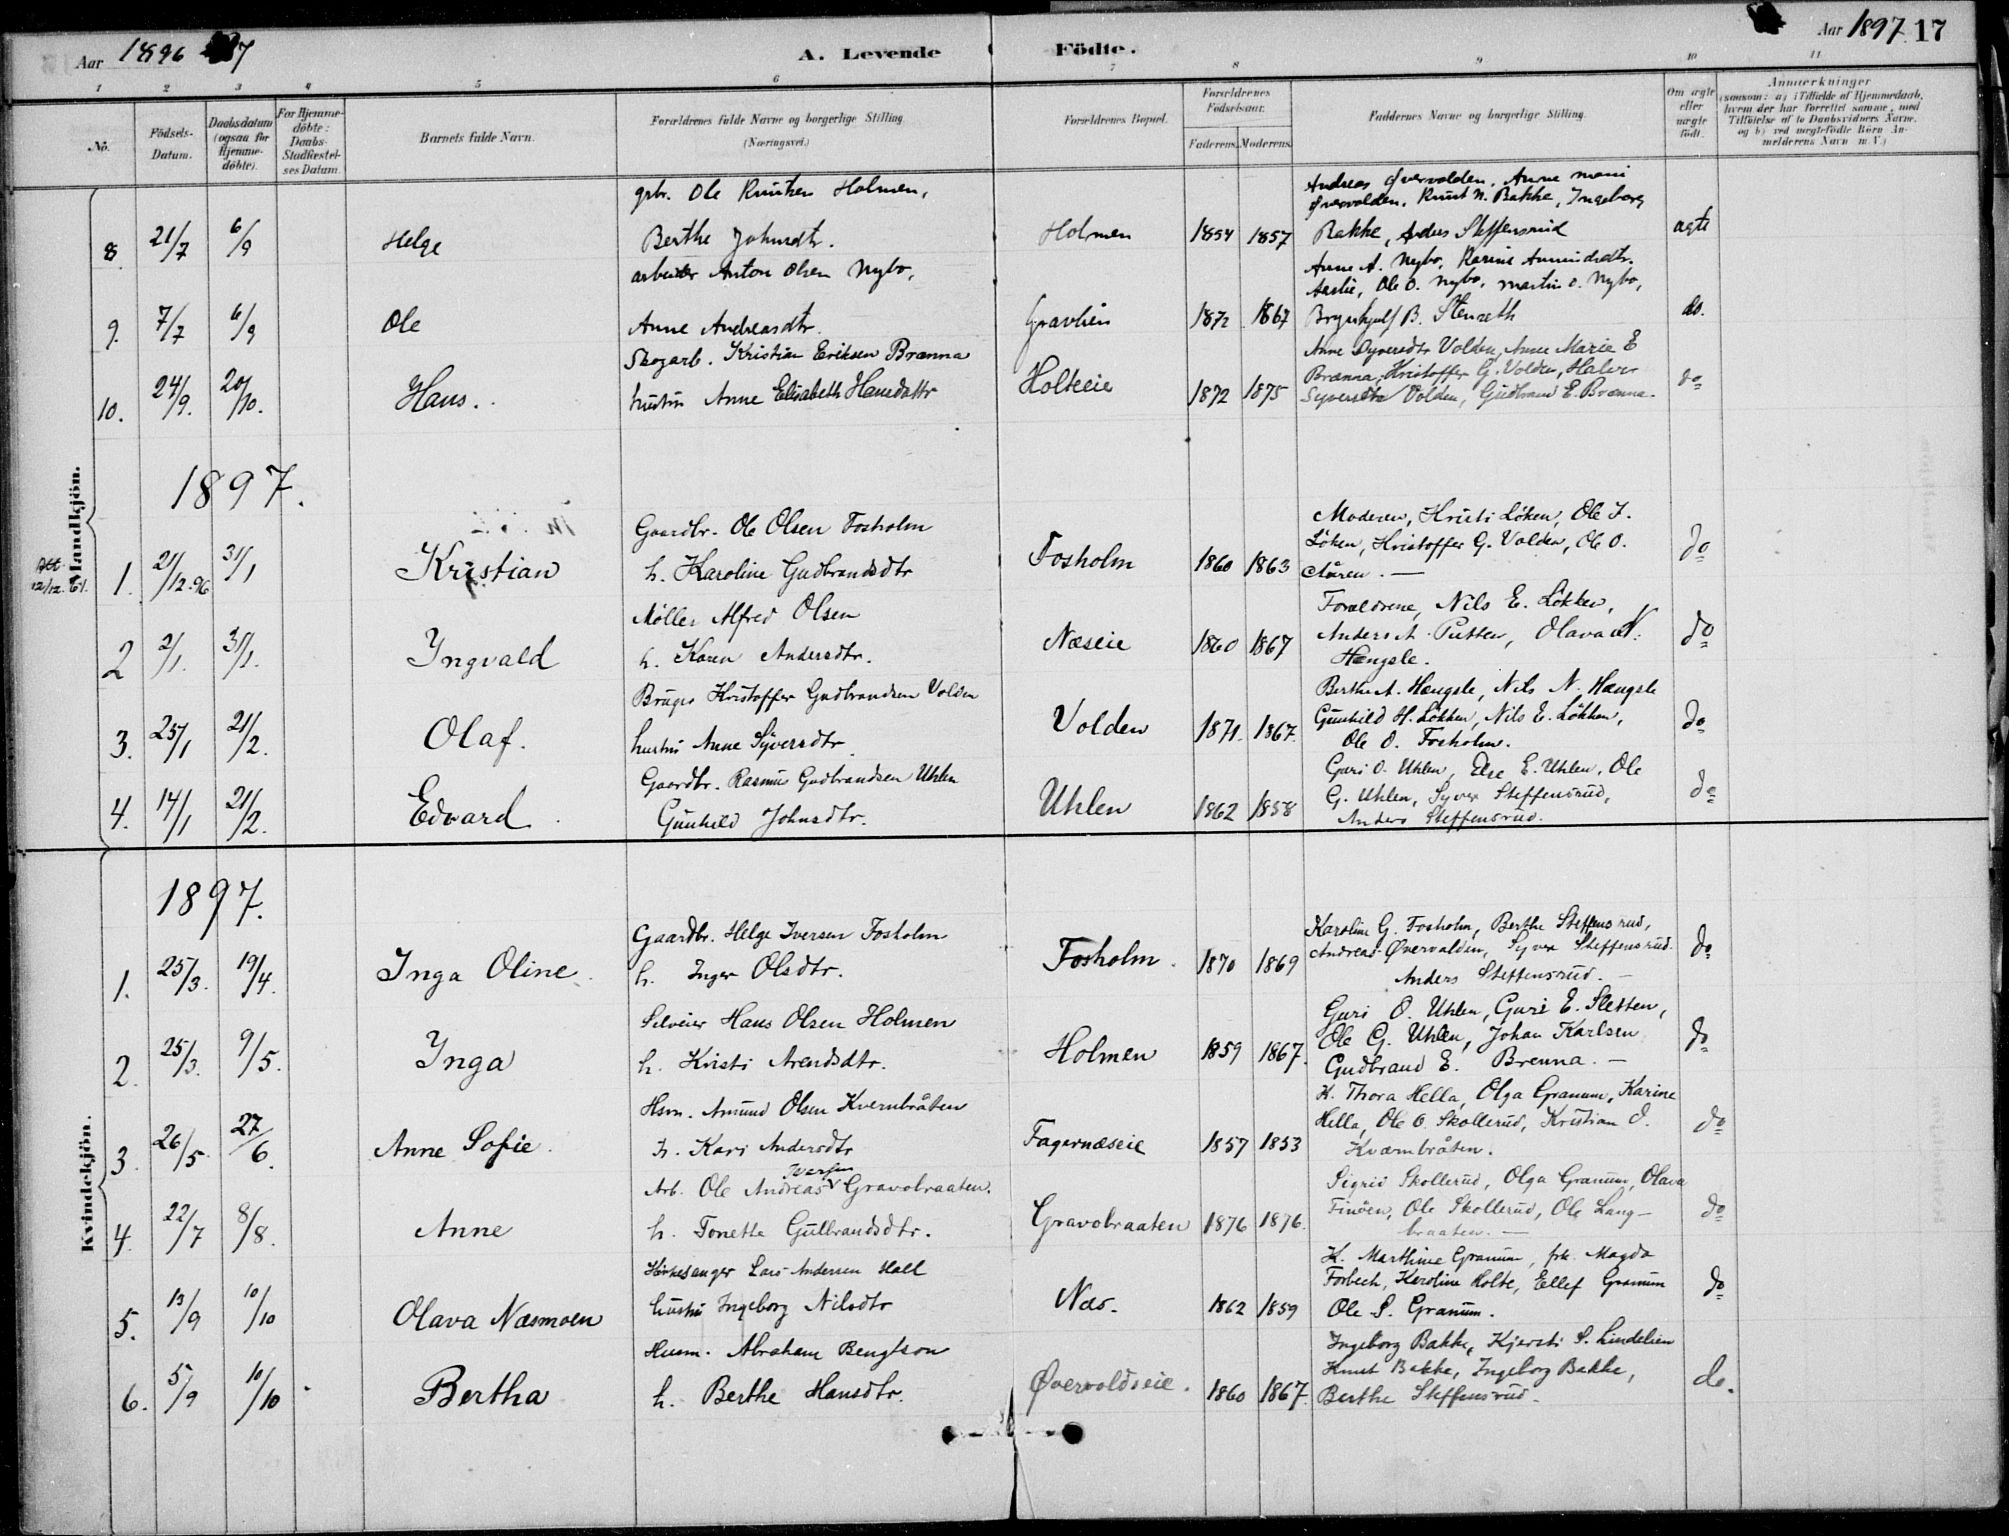 Aar 1896 7
A. Levende Födte.
Aar 1897. 17
1 2 3 4 5 6 7 8 9 10 11
No.
Födsels-Datum.
Daabsdatum (ogsaa for Hjemme-döbte).
For Hjemme-döbte: Daabs-Stadfæstel-ses Datum.
Barnets fulde Navn.
Forældrenes fulde Navne og borgerlige Stilling (Næringsvei.)
Forældrenes Bopæl.
Forældrenes Födselsaar.
Faderens. Moderens.
Faddernes Navne og borgerlige Stilling.
Om ægte eller uægte födt.
Anmærkninger
(saasom: a) i Tilfælde af Hjemmedaab,
hvem der har forrettet samme, med
Tilföielse af to Daabsvidners Navne.
og b) ved uægtefödte Börn An-
melderens Navn m. V.)
Mandkjön.
gbr. Ole Knutsen Holmen,
Andreas Øvervolden, Anne Marie
Øvervolden, Knut N. Bakke, Ingeborg
8. 21/7 6/9 Helge Berthe Johnsdtr. Holmen 1854 1857 Bakke, Anders Steffensrud ægte
arbeider Anton Olsen Nybo,
Anne A. Nybo, Karine Amundsdtr.
Aaslie, Ole O. Nybo, Martin O. Nybo,
9. 7/7 6/9 Ole Anne Andreasdtr. Gravlien 1872 1867 Brynhjulf B. Stenseth do.
Skogarb. Kristian Eriksen Brænna
Anne Syversdtr Volden, Anne Marie E
Brænna, Kristoffer G. Volden, Halvor
10. 24/9. 20/10. Hans. hustru Anne Elisabeth Hansdattr Holteeie 1872 1875 Syversdtr Volden, Gudbrand E. Brænna. do
1897.
Gaardbr. Ole Olsen Fosholm
Moderen, Kristi Löken, Ole I.
Löken, Kristoffer G. Volden, Ole O.
12/12. 61.
1. 21/12.96 31/1 Kristian h. Karoline Gudbrandsdtr Fosholm 1860 1863 do
Möller Alfred Olsen
Forældrene, Nils E. Lökken,
2 2/1. 31/1. Ingvald h. Karen Andersdtr. Næseie 1860 1867 Anders A. Putten, Olava N. do
Hængsle.
Bruger Kristoffer Gudbrandsen Volden
Berthe A. Hængsle, Nils N. Hængsle
3. 25/1 21/2. Olaf. hustru Anne Syversdtr Volden 1871. 1867. Gunhild H. Lökken, Nils E. Lökken, do
Ole O. Fosholm.
Gaardbr. Rasmus Gudbrandsen Uhlen
Guri O. Uhlen, Else E. Uhlen, Ole
4. 14/1 21/2. Edvard. Gunhild Johnsdtr. Uhlen 1862 1858 G. Uhlen, Syver Steffensrud, do
Anders Steffensrud.
Kvindekjön.
1897.
Gaardbr. Helge Iversen Fosholm
Karoline G. Fosholm, Berthe Steffensrud,
1. 25/3. 19/4. Inga Oline. h. Inger Olsdtr. Fosholm. 1870 1869 Andreas Øvervolden, Syver Steffensrud. do
Anders Steffensrud. —
Selveier Hans Olsen Holmen
Guri O. Uhlen, Guri E. Sletten,
2. 25/3. 9/5. Inga h. Kristi Arendsdtr. Holmen 1859 1867. Ole G. Uhlen, Johan Karlsen do
Gudbrand E. Brenna. —
Hsm. Amund Olsen Kvernbråten
K. Thora Hella, Olga Granum, Karine
3 26/5 27/6. Anne Sofie. h. Kari Andersdtr Fagernæseie 1857 1853 Hella, Ole O. Skollerud, Kristian O. do
Kværnbråten.
Arb. Ole Andreas Iversen Gravobraaten.
Sigrid Skollerud, Olga Granum, Olava
4. 22/7 8/8. Anne h. Tonette Gulbrandsdtr. Gravobraaten 1876 1876. Finöen, Ole Skollerud, Ole Lang- do
braaten. —
Kirkesanger Lars Andersen Hall
K. Marthine Granum, frk. Magda
5. 13/9 10/10 Olava Næsmoen hustru Ingeborg Nilsdtr Næs. 1862 1859 Forbech, Karoline Holte, Ellef Granum do
Ole S. Granum.
Husm. Abraham Bengtson
Ingeborg Bakke, Kjersti S. Lindelien
6. 5/9 10/10 Bertha h. Berthe Hansdtr. Øvervoldseie. 1860 1867. Knut Bakke, Ingeborg Bakke, do.
Berthe Steffensrud.